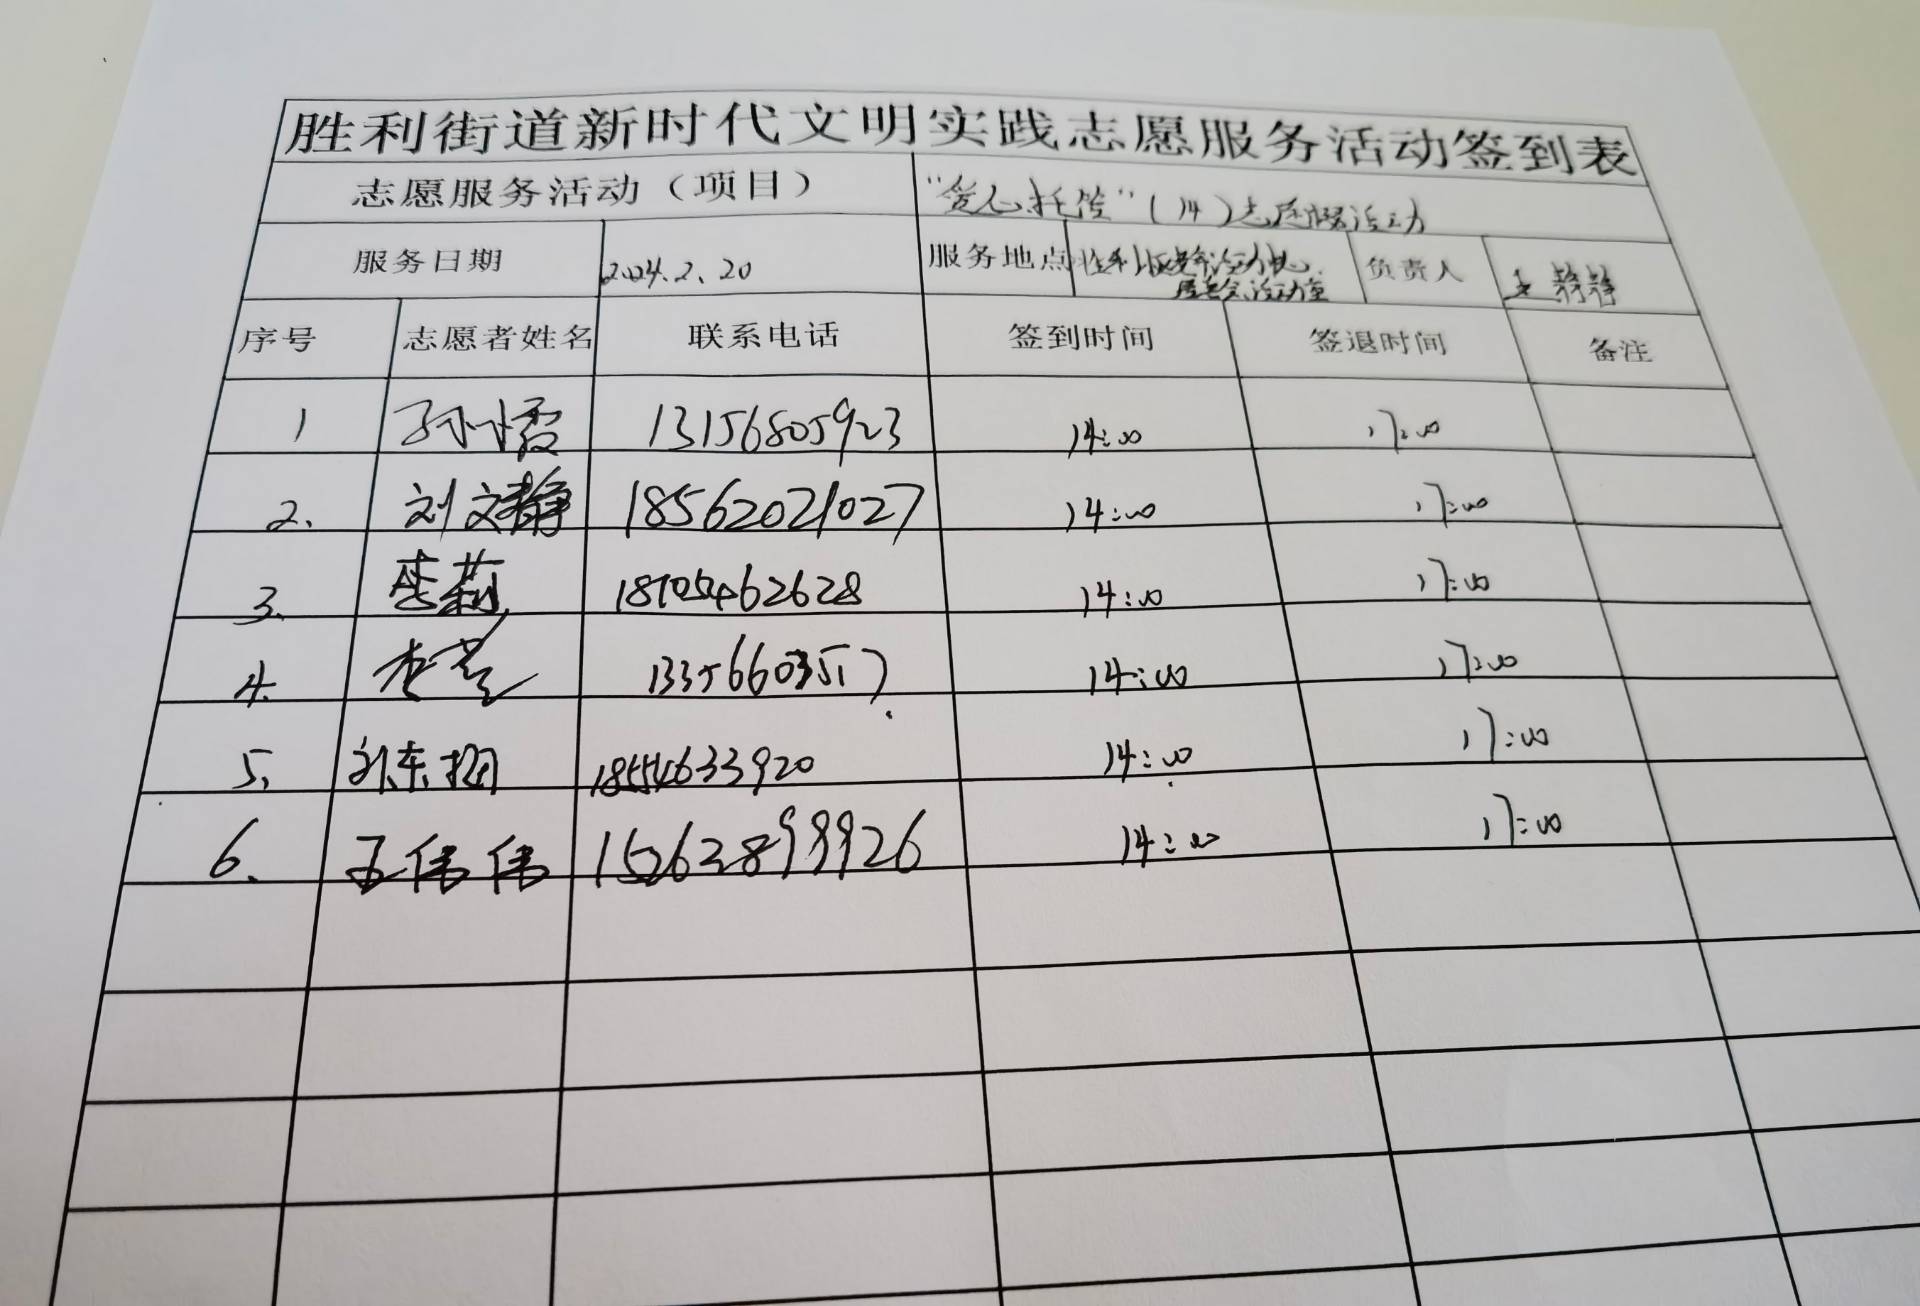 胜利街道新时代文明实践志愿服务活动签到表
志愿服务活动（项目） “爱心托管”(14)志愿服务活动
服务日期 2024.2.20 服务地点 负责人 王静静
居委会活动室
序号 志愿者姓名 联系电话 签到时间 签退时间 备注
1 孙霞 13156805923 14:00 17:00
2. 刘文静 18562021027 14:00 17:00
3. 李莉 14:00 17:00
4. 13356603517 14:00 17:00
5. 18554633920 14:00 17:00
6. 王伟伟 15263899926 14:00 17:00